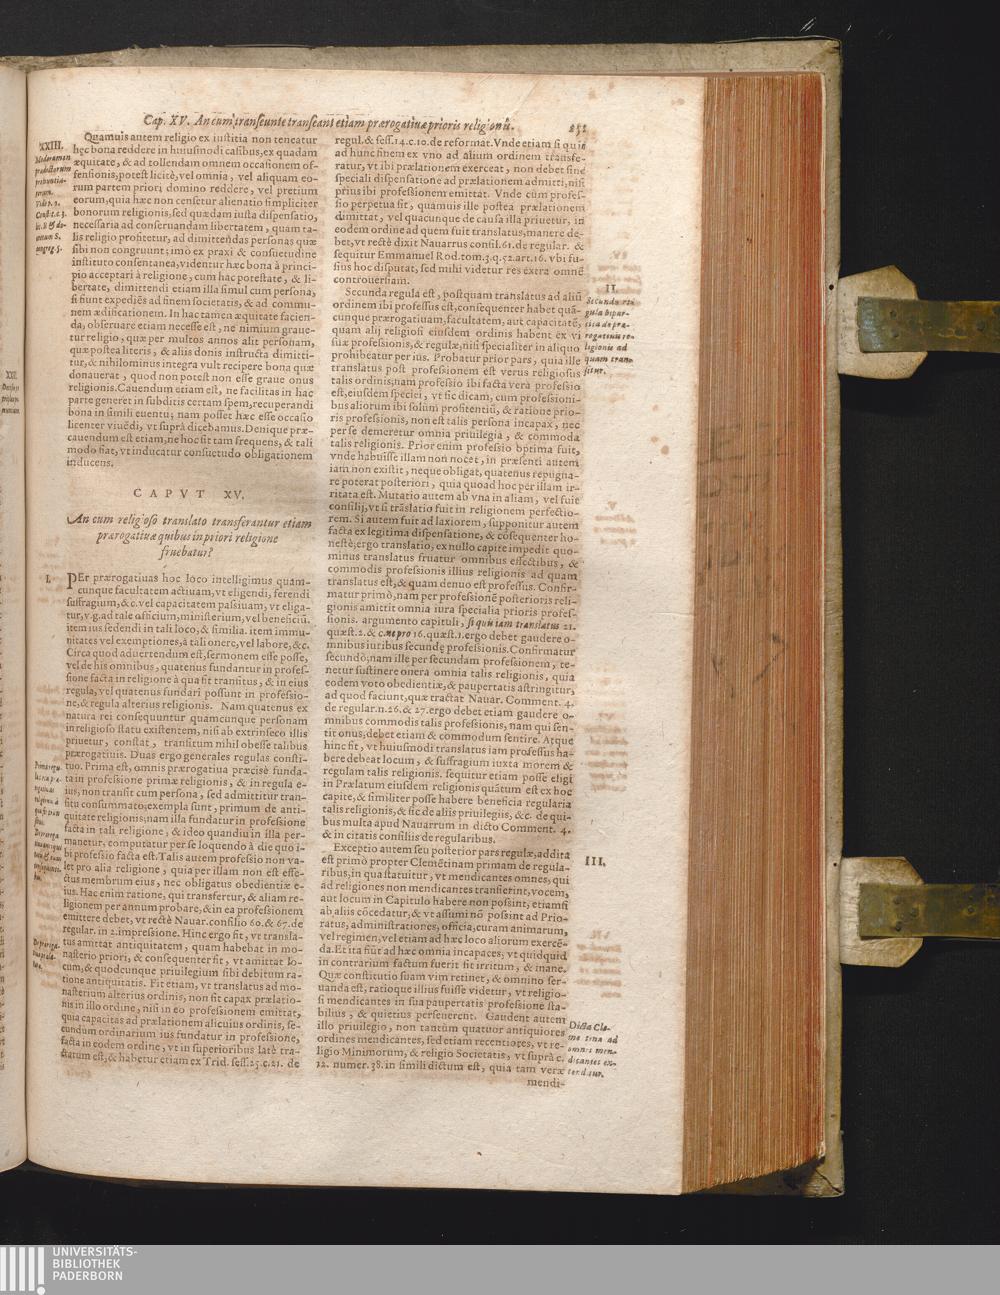 Cap. XV. An cum transeunte transeant etiam prærogatiuæ prioris religionis.
251
XXIII.
Quamuis autem religio ex iustitia non teneatur
hęc bona reddere in huiusmodi casibus, ex quadam
æquitate, & ad tollendam omnem occasionem of-
fensionis, potest licitè, vel omnia, vel aliquam eo-
rum partem priori domino reddere, vel pretium
eorum, quia hæc non censetur alienatio simpliciter
bonorum religionis, sed quædam iusta dispensatio,
necessaria ad conseruandam libertatem, quam ta-
lis religio profitetur, ad dimittendas personas quæ
sibi non congruunt; imò ex praxi & consuetudine
instituto consentanea, videntur hæc bona à princi-
pio acceptari à religione, cum hac potestate, & li-
bertate, dimittendi etiam illa simul cum persona,
si fiunt expediēs ad finem societatis, & ad commu-
nem ædificationem. In hac tamen æquitate facien-
da, obseruare etiam necesse est, ne nimium graue-
tur religio, quæ per multos annos alit personam,
quæ postea literis, & aliis donis instructa dimitti-
tur, & nihilominus integra vult recipere bona quæ
donauerat, quod non potest non esse graue onus
religionis. Cauendum etiam est, ne facilitas in hac
parte generet in subditis certam spem, recuperandi
bona in simili euentu; nam posset hæc esse occasio
licenter viuēdi, vt suprà dicebamus. Denique præ-
cauendum est etiam, ne hoc fit tam frequens, & tali
modo fiat, vt inducatur consuetudo obligationem
inducens.
CAPVT XV.
An cum religioso translato transferantur etiam
prærogatiuæ quibus in priori religione
fruebatur?
I.
PEr prærogatiuas hoc loco intelligimus quam-
cunque facultatem actiuam, vt eligendi, ferendi
suffragium, &c. vel capacitatem passiuam, vt eliga-
tur, v.g. ad tale officium, ministerium, vel beneficiū.
item ius sedendi in tali loco, & similia. item immu-
nitates vel exemptiones, à tali onere, vel labore, &c.
Circa quod aduertendum est, sermonem esse posse,
vel de his omnibus, quatenus fundantur in profes-
sione facta in religione à qua fit transitus, & in eius
regula, vel quatenus fundari possunt in professio-
ne, & regula alterius religionis. Nam quatenus ex
natura rei consequuntur quamcunque personam
in religioso statu existentem, nisi ab extrinseco illis
priuetur, constat, transitum nihil obesse talibus
prærogatiuis. Duas ergo generales regulas consti-
tuo. Prima est, omnis prærogatiua præcisè funda-
ta in professione primæ religionis, & in regula e-
ius, non transit cum persona, sed admittitur tran-
situ consummato; exempla sunt, primum de anti-
quitate religionis; nam illa fundatur in professione
facta in tali religione, & ideo quandiu in illa per-
manetur, computatur per se loquendo à die quo i-
bi professio facta est. Talis autem professio non va-
let pro alia religione, quia per illam non est effe-
ctus membrum eius, nec obligatus obedientiæ e-
ius. Hac enim ratione, qui transfertur, & aliam re-
ligionem per annum probare, & in ea professionem
emittere debet, vt rectè Nauar. consilio 60. & 67. de
regular. in 2. impressione. Hinc ergo fit, vt transla-
tus amittat antiquitatem, quam habebat in mo-
nasterio priori, & consequenter fit, vt amittat lo-
cum, & quodcunque priuilegium sibi debitum ra-
tione antiquitatis. Fit etiam, vt translatus ad mo-
nasterium alterius ordinis, non sit capax prælatio-
nis in illo ordine, nisi in eo professionem emittat,
quia capacitas ad prælationem alicuius ordinis, se-
cundum ordinarium ius fundatur in professione,
facta in eodem ordine, vt in superioribus latè tra-
ctatum est, & habetur etiam ex Trid. sess. 25. c. 21. de
regul. & sess. 14. c. 10. de reformat. Vnde etiam si quis
ad hunc finem ex vno ad alium ordinem transfe-
ratur, vt ibi prælationem exerceat, non debet sine
speciali dispensatione ad prælationem admitti, nisi
prius ibi professionem emittat. Vnde cùm profes-
sio perpetua sit, quamuis ille postea prælationem
dimittat, vel quacunque de causa illa priuetur, in
eodem ordine ad quem fuit translatus, manere de-
bet, vt rectè dixit Nauarrus consil. 61. de regular. &
sequitur Emmanuel Rod. tom. 3. q. 52. art. 16. vbi fu-
sius hoc disputat, sed mihi videtur res extra omnē
controuersiam.
II.
Secunda re-
gula bipar-
tita de præ-
rogatiuis re-
ligionis ad
quam trans-
fitur.
Secunda regula est, postquam translatus ad aliū
ordinem ibi professus est, consequenter habet quā-
cunque prærogatiuam, facultatem, aut capacitatē,
quam alij religiosi eiusdem ordinis habent ex vi
suæ professionis, & regulæ, nisi specialiter in aliquo
prohibeatur per ius. Probatur prior pars, quia ille
translatus post professionem est verus religiosus
talis ordinis, nam professio ibi facta verā professio
est, eiusdem speciei, vt sic dicam, cum professioni-
bus aliorum ibi solùm profitentiū, & ratione prio-
ris professionis, non est talis persona incapax, nec
per se demeretur omnia priuilegia, & commoda
talis religionis. Prior enim professio optima fuit,
vnde habuisse illam non nocet, in præsenti autem
iam non existit, neque obligat, quatenus repugna-
re poterat posteriori, quia quoad hoc per illam ir-
ritata est. Mutatio autem ab vna in aliam, vel fuit
consilij, vt si trāslatio fuit in religionem perfectio-
rem. Si autem fuit ad laxiorem, supponitur autem
facta ex legitima dispensatione, & cōsequenter ho-
nestè; ergo translatio, ex nullo capite impedit quo-
minus translatus fruatur omnibus effectibus, &
commodis professionis illius religionis ad quam
translatus est, & quam denuo est professus. Confir-
matur primò, nam per professionē posterioris reli-
gionis amittit omnia iura specialia prioris profes-
sionis. argumento capituli, si quis iam translatus 21.
quæst. 2. & c. ne pro 16. quæst. 1. ergo debet gaudere o-
mnibus iuribus secundę professionis. Confirmatur
secundò, nam ille per secundam professionem, te-
netur sustinere onera omnia talis religionis, quia
eodem voto obedientiæ, & paupertatis astringitur,
ad quod faciunt, quæ tractat Nauar. Comment. 4.
de regular. n. 26. & 27. ergo debet etiam gaudere o-
mnibus commodis talis professionis, nam qui sen-
tit onus, debet etiam & commodum sentire. Atque
hinc fit, vt huiusmodi translatus iam professus ha-
bere debeat locum, & suffragium iuxta morem &
regulam talis religionis. sequitur etiam posse eligi
in Prælatum eiusdem religionis quātum est ex hoc
capite, & similiter posse habere beneficia regularia
talis religionis, & sic de aliis priuilegiis, &c. de qui-
bus multa apud Nauarrum in dicto Comment. 4.
& in citatis consiliis de regularibus.
III.
Exceptio autem seu posterior pars regulæ, addita
est primò propter Clemētinam primam de regula-
ribus, in qua statuitur, vt mendicantes omnes, qui
ad religiones non mendicantes transierint, vocem,
aut locum in Capitulo habere non possint, etiamsi
ab aliis cōcedatur, & vt assumi nō possint ad Prio-
ratus, administrationes, officia, curam animarum,
vel regimen, vel etiam ad hæc loco aliorum exercē-
da. Et ita fiūt ad hæc omnia incapaces, vt quidquid
in contrarium factum fuerit sit irritum, & inane.
Quæ constitutio suam vim retinet, & omnino ser-
uanda est, ratioque illius fuisse videtur, vt religio-
si mendicantes in sua paupertatis professione sta-
bilius, & quietius perseuerent. Gaudent autem
illo priuilegio, non tantùm quatuor antiquiores
ordines mendicantes, sed etiam recentiores, vt re-
ligio Minimorum, & religio Societatis, vt suprà c.
12. numer. 38. in simili dictum est, quia tam veræ
mendi-
Dicta Cle-
mentina ad
omnes men-
dicantes ex-
tenditur.
UNIVERSITÄTS-
BIBLIOTHEK
PADERBORN